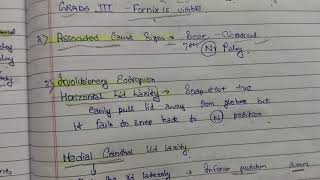 GRADE III - Fornix is visible
2) Associated Cause Signs → Scar - Cicatricial
7th (N) Palsy.
3) Involutionary Ectropion
Horizontal Lid Laxity → Snapback test +ve
easily pull lid away from globe but
it fails to snap back to (N) position
Medial Canthal Lid laxity.
the lid laterally → Inferior punctum 2mm